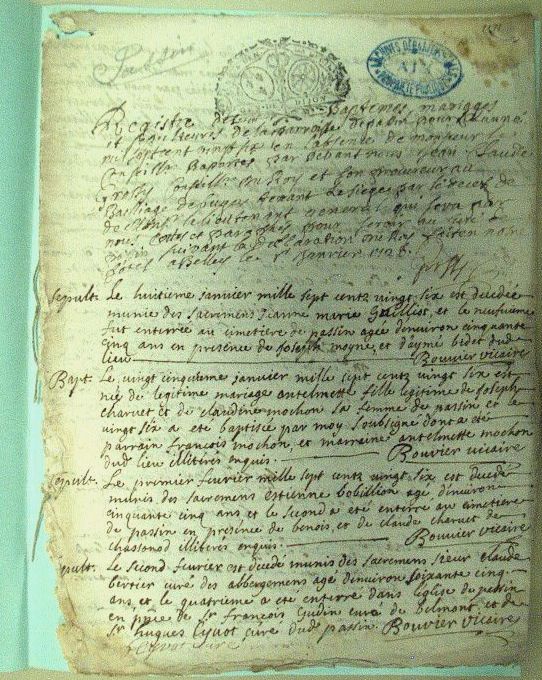 Passin
ARCHIVES DÉPARTEMENTALES
AIN
Registre de baptemes mariages
et sepultures de la parroisse de passin pour l'année
mil sept cent vingt six en l'absence de monsieur le
par devant nous Jean Claude
du Roy et son procureur au
Bailliage de tenant le siege par le deces de
le lieutenant general qui sera par
nous et pour servir au curé de
suivant la declaration du Roy fait en notre
hotel a Belley le 1r janvier 1726
sepult. Le huitieme janvier mille sept centz vingt six est decedée
munie des sacremens jeanne marie Guilliot, et le neufvieme
fut enterrée au cimetiere de passin agee denuiron cinquante
cinq ans en presence de Joseph moyne, et daymé bidet dud
lieu Bouvier vicaire
Bapt. Le vingt cinquieme janvier mille sept centz vingt six est
née de legitime mariage antelmette fille legitime de Joseph
charvet et de claudine mochon sa femme de passin et le
vingt six a ete baptisée par moy soubsigné dont a ete
parrain francois mochon, et marraine antelmette mochon
dud lieu illitires enquis. Bouvier vicaire
sepult. Le premier fevrier mille sept centz vingt six est decedé
munis des sacremens estienne bobillion agé denuiron
cinquante cinq ans et le second a éte enterre au cimetiere
de passin en presence de benois, et de claude charvet de
chassonod illitires enquis. Bouvier vicaire
sepult. Le second fevrier est decedé munis des sacremens sieur claude
bertier curé des abbergemens agé denuiron soixante cinq
ans, et le quatrieme a éte enterre dans l'eglise de passin
en pnce de sr francois Gudin curé de belmont, et de
sr hugues curé dud passin. Bouvier vicaire